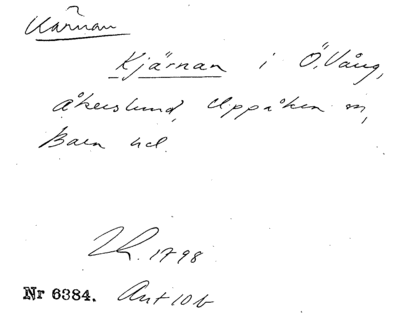 Kärnan
Kjärnan i Ö. Vång,
Åkerslund, Uppåkra sn,
Bara hd.
LR. 1798.
Nr 6384. Ant 10 b